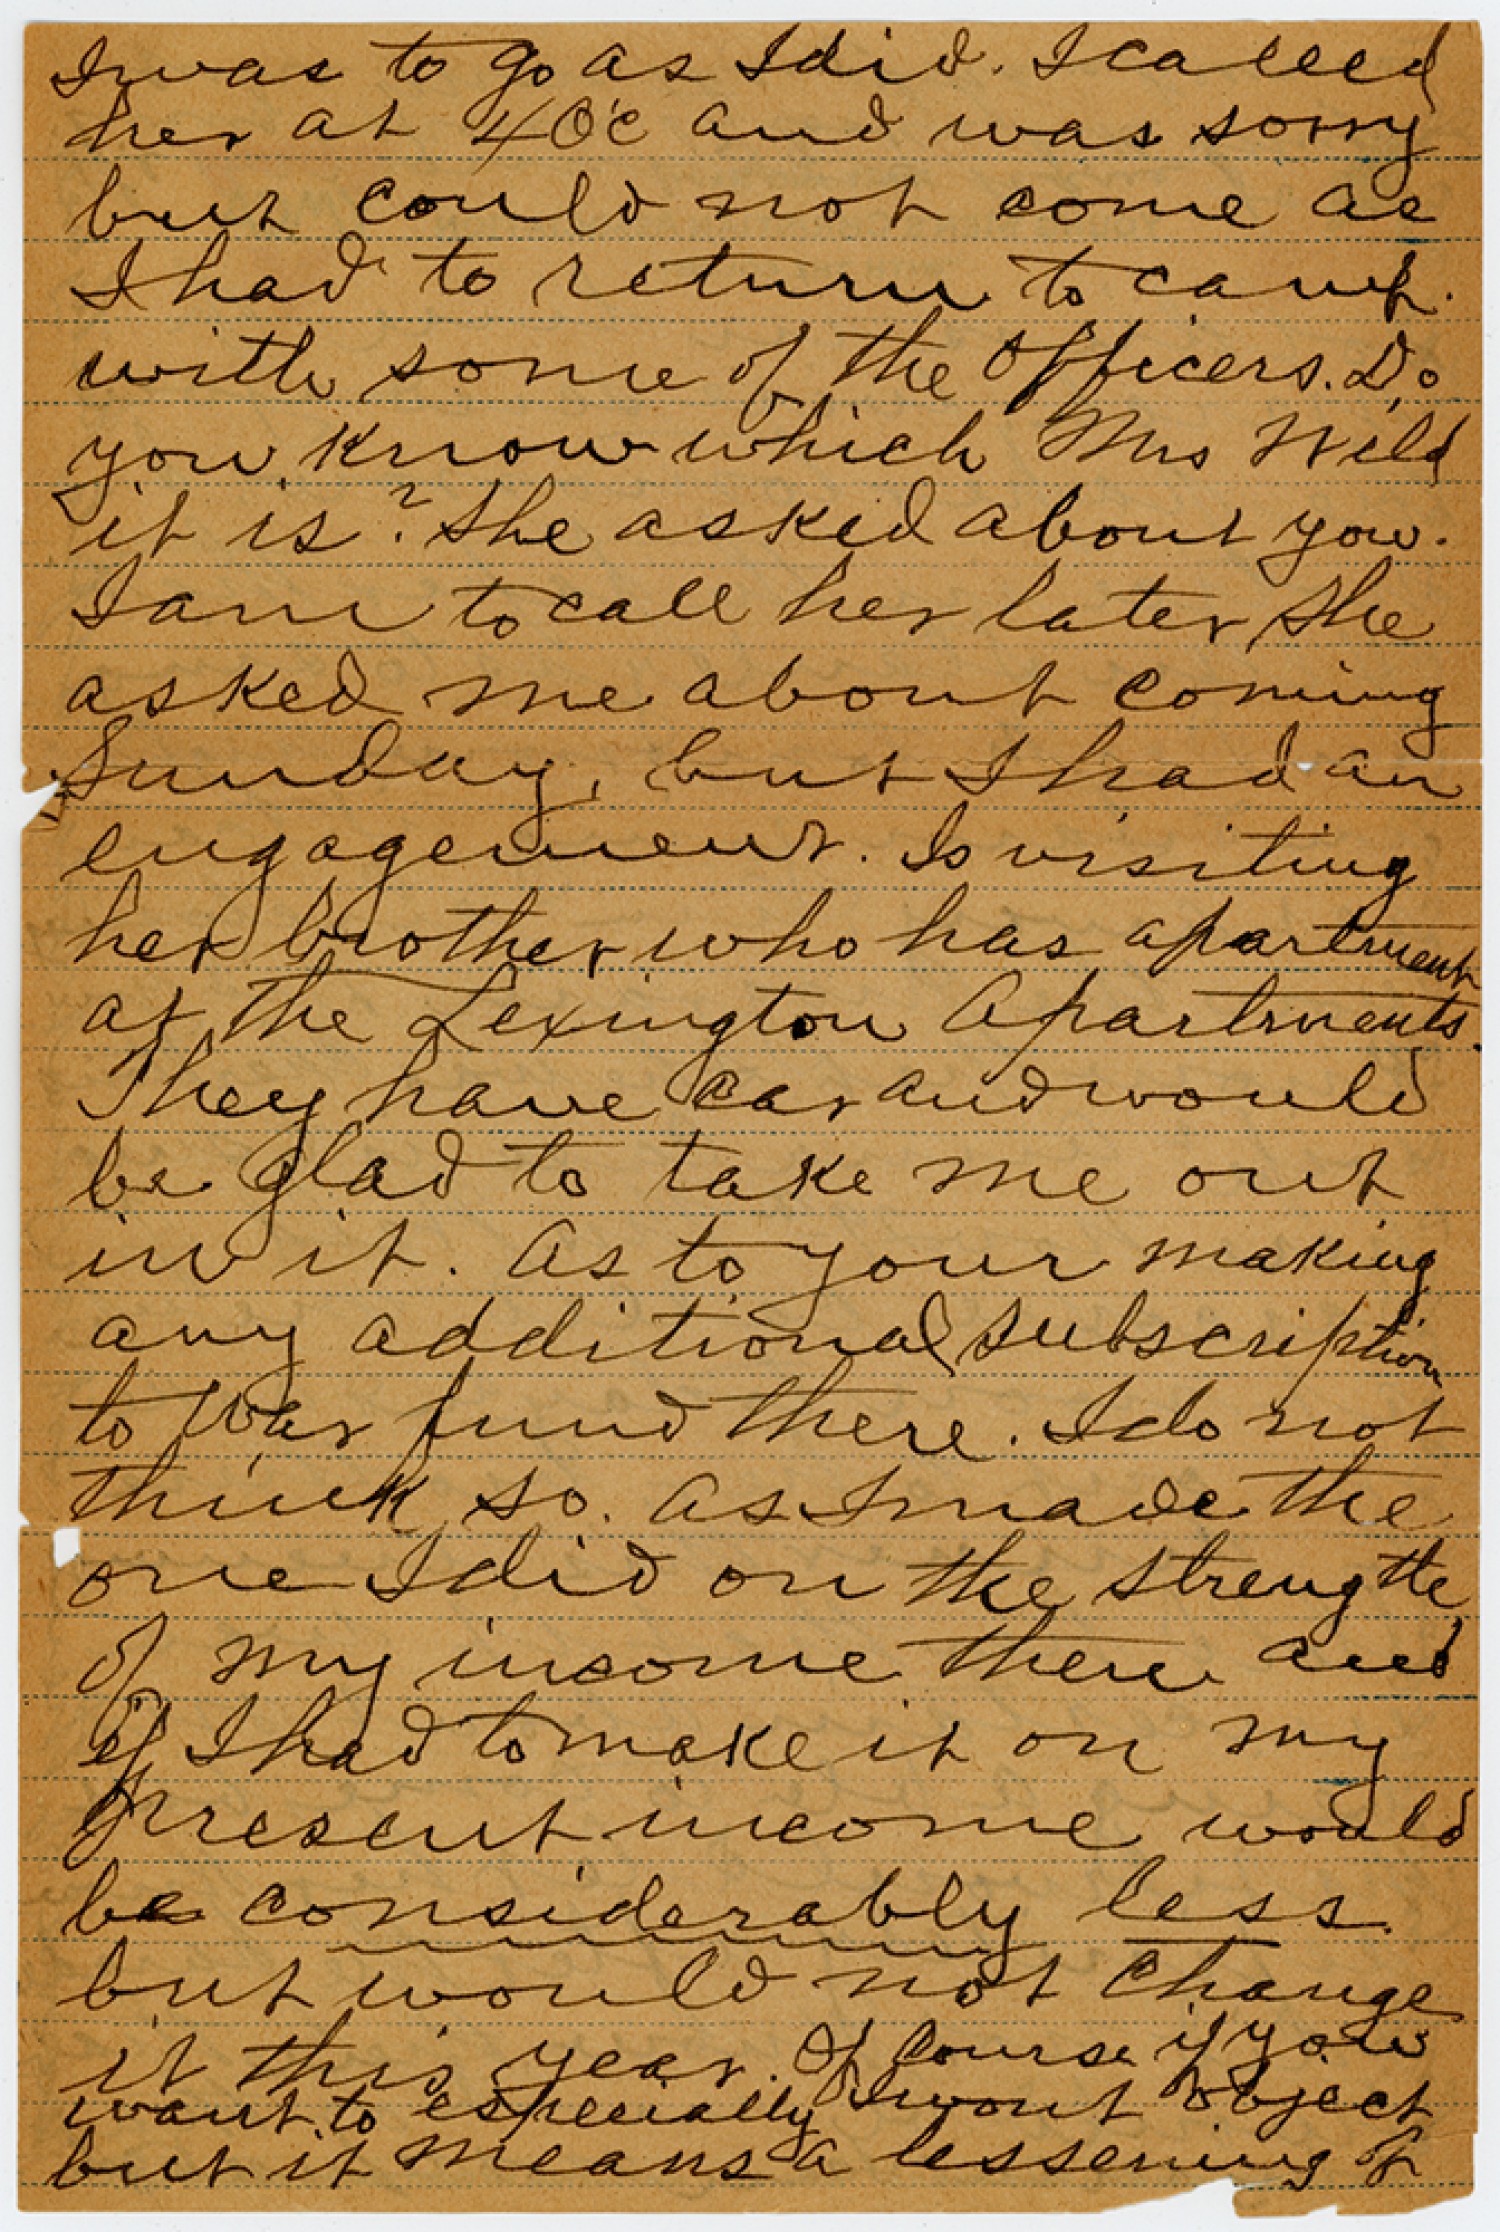 I was to go as I did. I called
her at 4 Oc and was sorry
but could not come as
I had to return to camp.
with some of the Officers. Do
you know which Mrs Wild
it is? She asked about you.
I am to call her later, She
asked me about coming
Sunday, but I had an
engagement. Is visiting
her brother who has apartment
at the Lexington Apartments.
They have car and would
be glad to take me out
in it. As to your making
any additional subscription
to War fund there. I do not
think so. As I made the
one I did on the strength
of my income then and
if I had to make it on my
present income would
be considerably less
but would not change
it this year. Of course if you
want to especially I wont object
but it means a lessening of